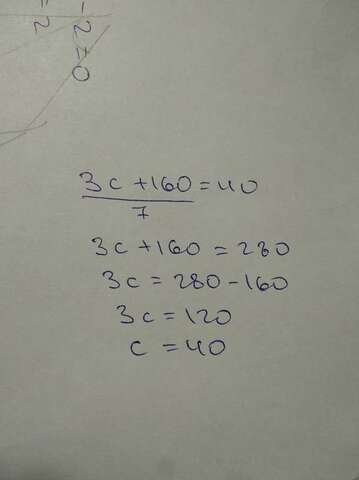 -2=0
= 2
3c+160/7 = 40
3c+160 = 280
3c = 280-160
3c = 120
c = 40